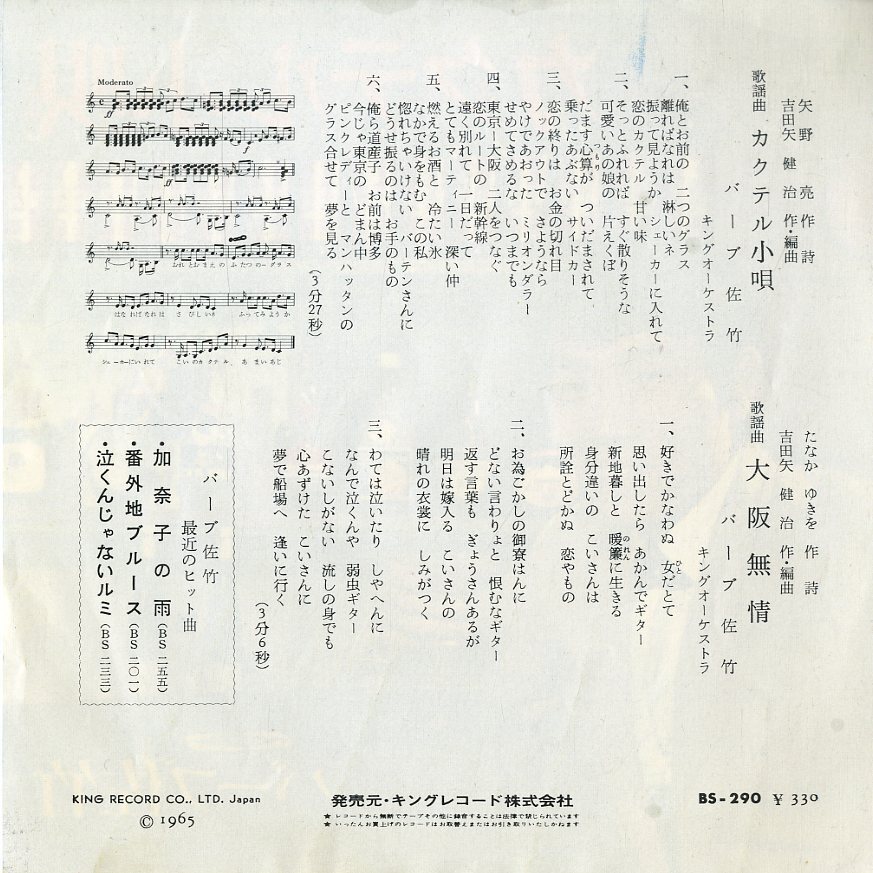 矢野亮 作詩
吉田矢健治 作・編曲
歌謡曲 カクテル小唄
バーブ佐竹
キングオーケストラ
一、俺とお前の 二つのグラス
離ればなれは 淋しいネ
振って見ようか シェーカーに入れて
恋のカクテル 甘い味
二、そっとふれれば すぐ散りそうな
可愛いあの娘の 片えくぼ
だます心算が ついだまされて
つもり
乗ったあぶない サイドカー
三、恋の終りは お金の切れ目
ノックアウトで さようなら
やけであおった ミリオンダラー
せめてさめるな いつまでも
四、東京―大阪 二人をつなぐ
恋のルートの 新幹線
遠く別れて 一日だって
とてもマーティニー 深い仲
五、燃えるお酒と 冷たい氷
なかで身をもむ この私
惚れちゃいけない バーテンさんに
どうせ振るのは お手のもの
六、俺ら道産子 お前は博多
今じゃ東京の どまん中
ピンクレディーと マンハッタンの
グラス合せて 夢を見る
(3分27秒)
Moderato
おれとおまえの ふたつのーグラス
はなればなれは さびしいネ ふってみようか
シェーカーにいれて こいのカクテル あまいあじ
たなかゆきを 作詩
吉田矢健治 作・編曲
歌謡曲 大阪無情
バーブ佐竹
キングオーケストラ
一、好きでかなわぬ 女だとて
ひと
思い出したら あかんでギター
新地暮しと 暖簾に生きる
のれん
身分違いの こいさんは
所詮とどかぬ 恋やもの
二、お為ごかしの御寮はんに
どない言わりょと 恨むなギター
返す言葉も ぎょうさんあるが
明日は嫁入る こいさんの
晴れの衣裳に しみがつく
三、わては泣いたり しやへんに
なんで泣くんや 弱虫ギター
こないしがない 流しの身でも
心あずけた こいさんに
夢で船場へ 逢いに行く
(3分6秒)
バーブ佐竹
最近のヒット曲
・加奈子の雨(BS 二五五)
・番外地ブルース(BS 二〇一)
・泣くんじゃないルミ(BS 二三三)
KING RECORD CO., LTD. Japan
© 1965
発売元・キングレコード株式会社
★ レコードから無断でテープその他に録音することは法律で禁じられています
★ いったんお買上げのレコードはお取替えまたはお引き取りいたしかねます
BS-290 ¥ 330